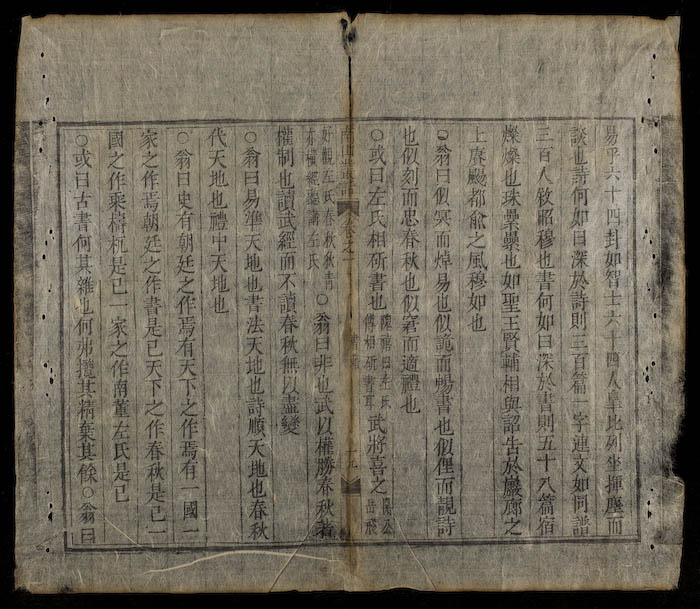 易乎六十四封如智士六十四人皐比列坐揮麈而
談也詩何如曰深於詩則三百篇一字連文如同譜
三百人敘昭穆也書何如曰深於書則五十八篇宿
燦燦也珠纍纍也如聖王賢輔相與詔告於巖廊之
上賡颺都兪之風穆如也
○翁曰似冥而焯易也似詭而暢書也似俚而靚詩
也似刻而忠春秋也似窘而適禮也
○或曰左氏相斫書也 隗禧曰左氏 傳相斫書耳 武將喜之 關公 岳飛
卷之一
十九
好觀左氏春秋狄青 亦精經聽講左氏 ○翁曰非也武以權勝春秋若
權制也讀武經而不讀春秋無以盡變
○翁曰易準天地也書法天地也詩順天地也春秋
代天地也禮中天地也
○翁曰史有朝廷之作焉有天下之作焉有一國一
家之作焉朝廷之作書是已天下之作春秋是已一
國之作乘檮杌是已一家之作南董左氏是已
○或曰古書何其雜也何弗攬其精棄其餘○翁曰